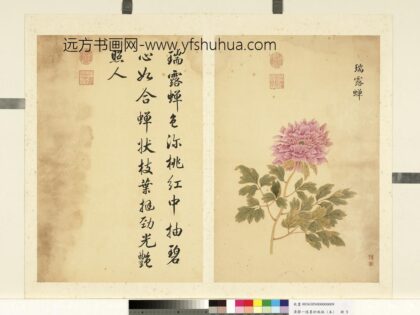 远方书画网-www.yfshuhua.com
瑞露蟬
瑞露蟬色深桃紅中抽碧
心如合蟬狀枝葉挺勁光艷
照人